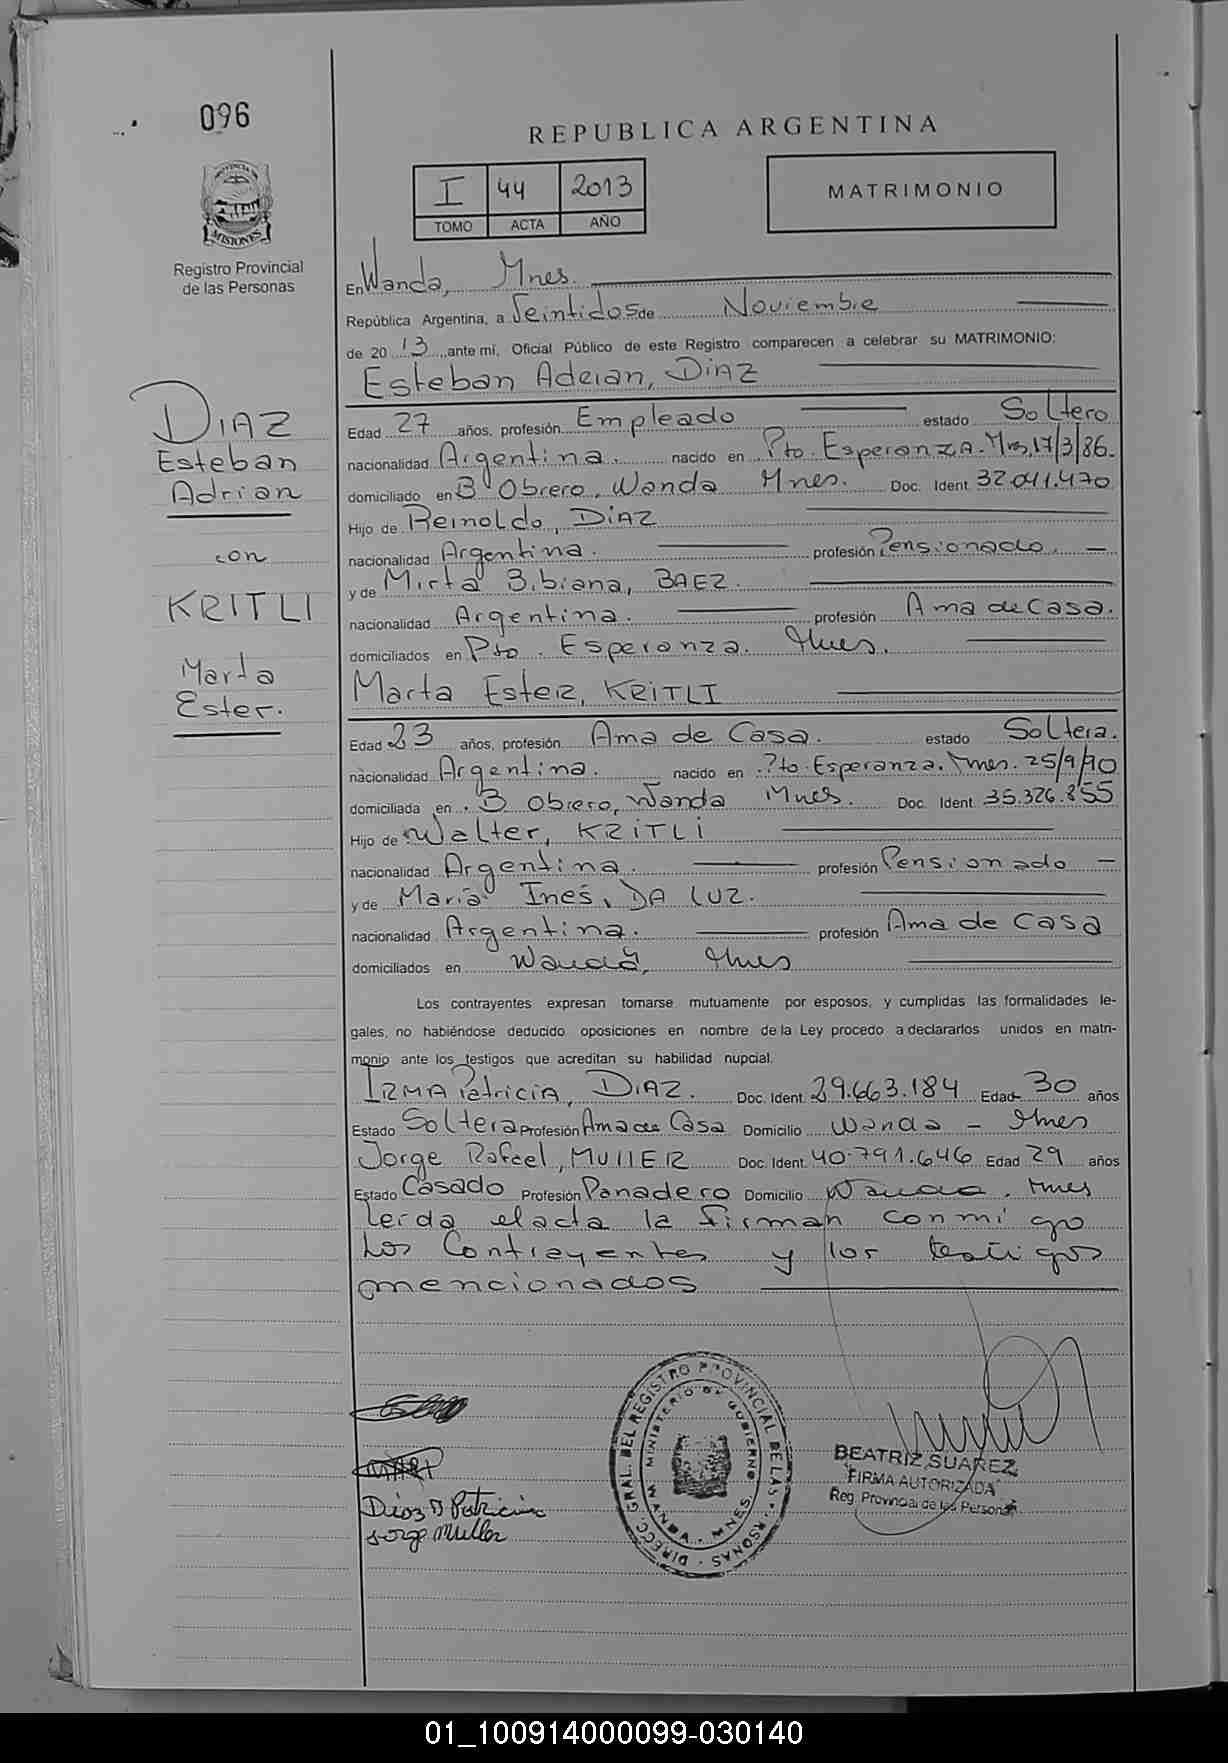 096
REPUBLICA ARGENTINA
I 44 2013
TOMO ACTA AÑO
MATRIMONIO
PROVINCIA DE
MISIONES
Registro Provincial
de las Personas
En Wanda, Mnes.
República Argentina, a Veintidos de Noviembre
de 2013, ante mí, Oficial Público de este Registro comparecen a celebrar su MATRIMONIO:
Esteban Adrian, DIAZ
DIAZ
Esteban
Adrian
con
KRITLI
Marta
Ester.
Edad 27 años, profesión Empleado estado Soltero
nacionalidad Argentina. nacido en Pto. Esperanza. Mns, 17/3/86.
domiciliado en B Obrero, Wanda Mnes. Doc. Ident 32.041.470
Hijo de Reinoldo, DIAZ
nacionalidad Argentina. profesión Pensionado.
y de Mirta Bibiana, BAEZ.
nacionalidad Argentina. profesión Ama de Casa.
domiciliados en Pto. Esperanza. Mnes.
Marta Ester, KRITLI
Edad 23 años, profesión Ama de Casa. estado Soltera.
nacionalidad Argentina. nacido en Pto. Esperanza. Mnes. 25/9/90
domiciliada en B Obrero, Wanda Mnes. Doc. Ident 35.326.855
Hijo de Walter, KRITLI
nacionalidad Argentina. profesión Pensionado
y de María Inés, DA LUZ.
nacionalidad Argentina. profesión Ama de Casa
domiciliados en Wanda, Mnes
Los contrayentes expresan tomarse mutuamente por esposos, y cumplidas las formalidades le-
gales, no habiéndose deducido oposiciones en nombre de la Ley procedo a declararlos unidos en matri-
monio ante los testigos que acreditan su habilidad nupcial.
IRMA Patricia, DIAZ. Doc. Ident. 29.663.184 Edad 30 años
Estado Soltera Profesión Ama de Casa Domicilio Wanda - Mnes
Jorge Rafael, MULLER Doc. Ident. 40.791.646 Edad 29 años
Estado Casado Profesión Panadero Domicilio Wanda. Mnes
Leida el acta la firman conmigo
Los Contrayentes y los testigos
mencionados
Diaz Patricia
Jorge Muller
DIRECC. GRAL. DEL REGISTRO PROVINCIAL DE LAS PERSONAS
MINISTERIO DE GOBIERNO
WANDA - MNES.
BEATRIZ SUAREZ
"FIRMA AUTORIZADA"
Reg. Provincial de las Personas
01_100914000099-030140